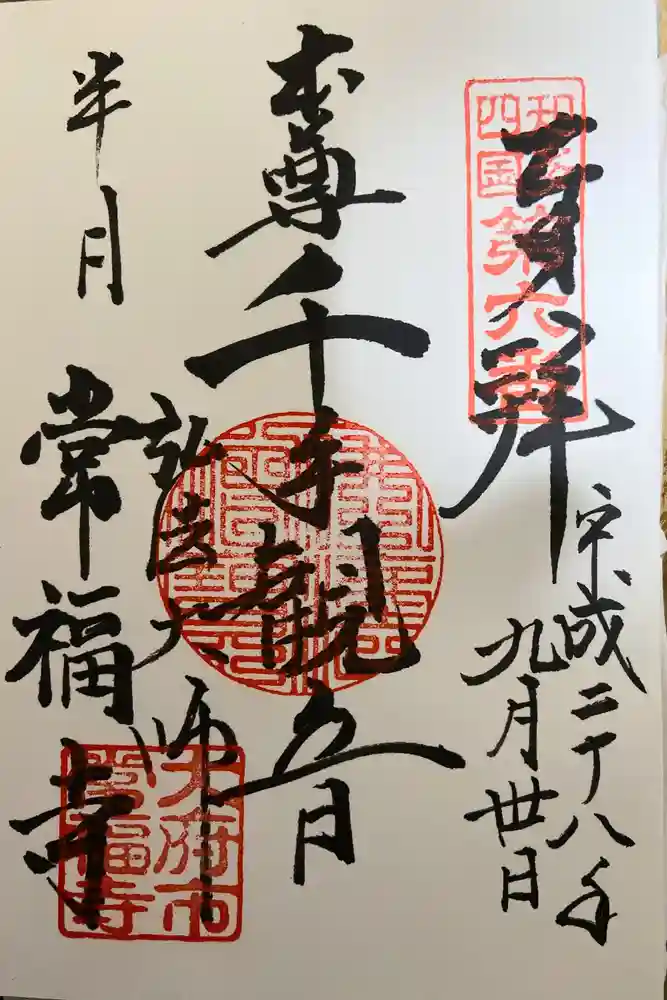 奉拝
知多
四国
第六番
平成二十八年
九月丗日
本尊千手観音
弘法大師
半月
常福寺
大府市
常福寺